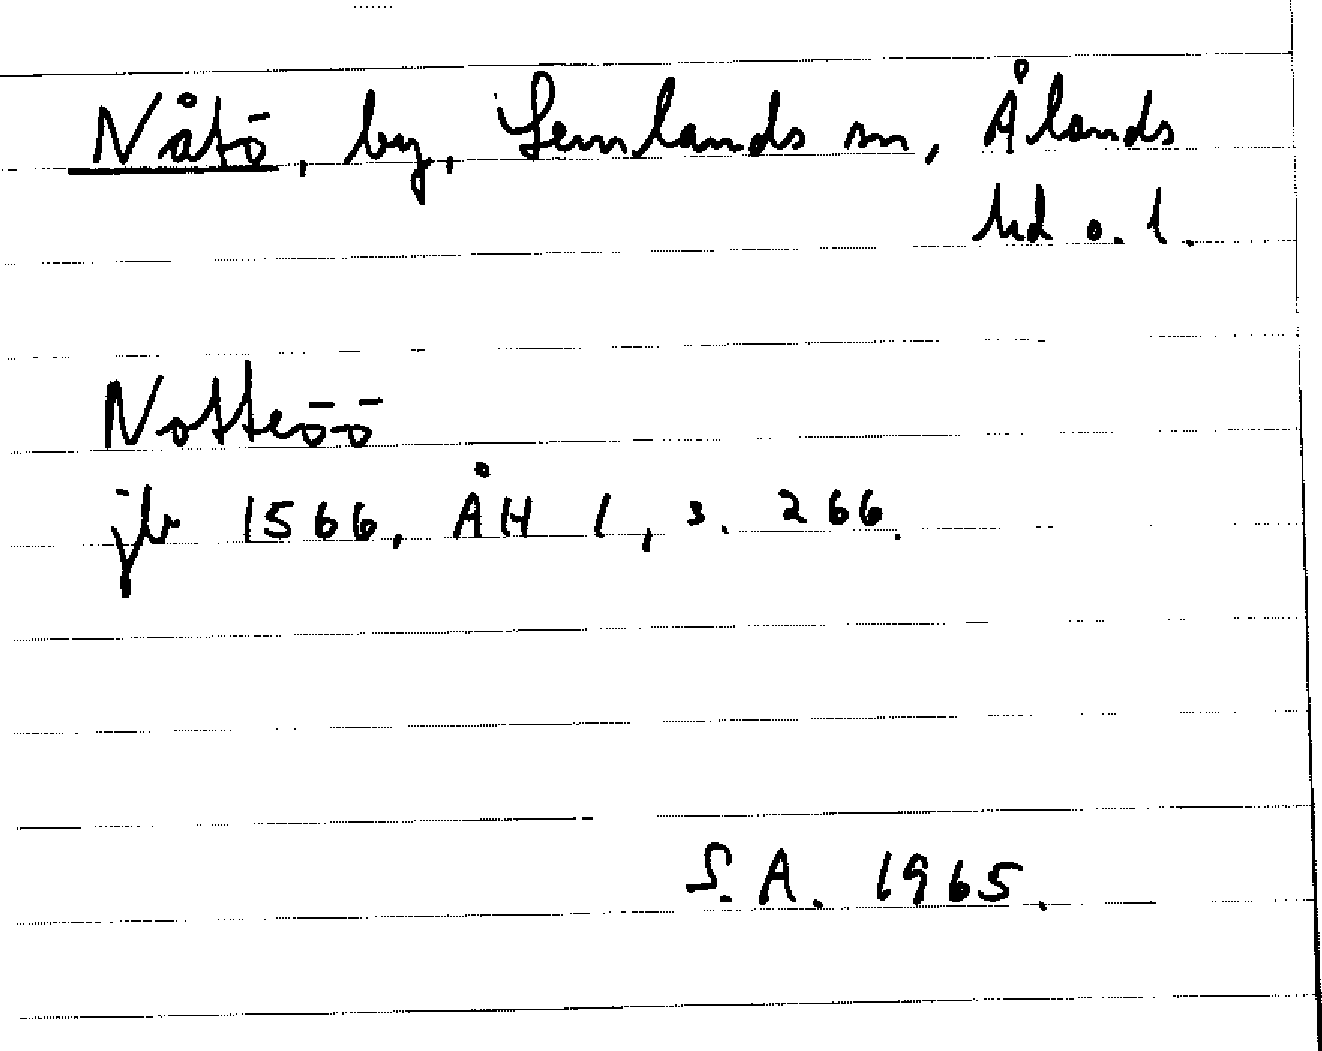 Nåtö, by, Lemlands sn, Ålands
hd o. l.
Notteöö
jb 1566, ÅH 1, s. 266.
S.A. 1965.